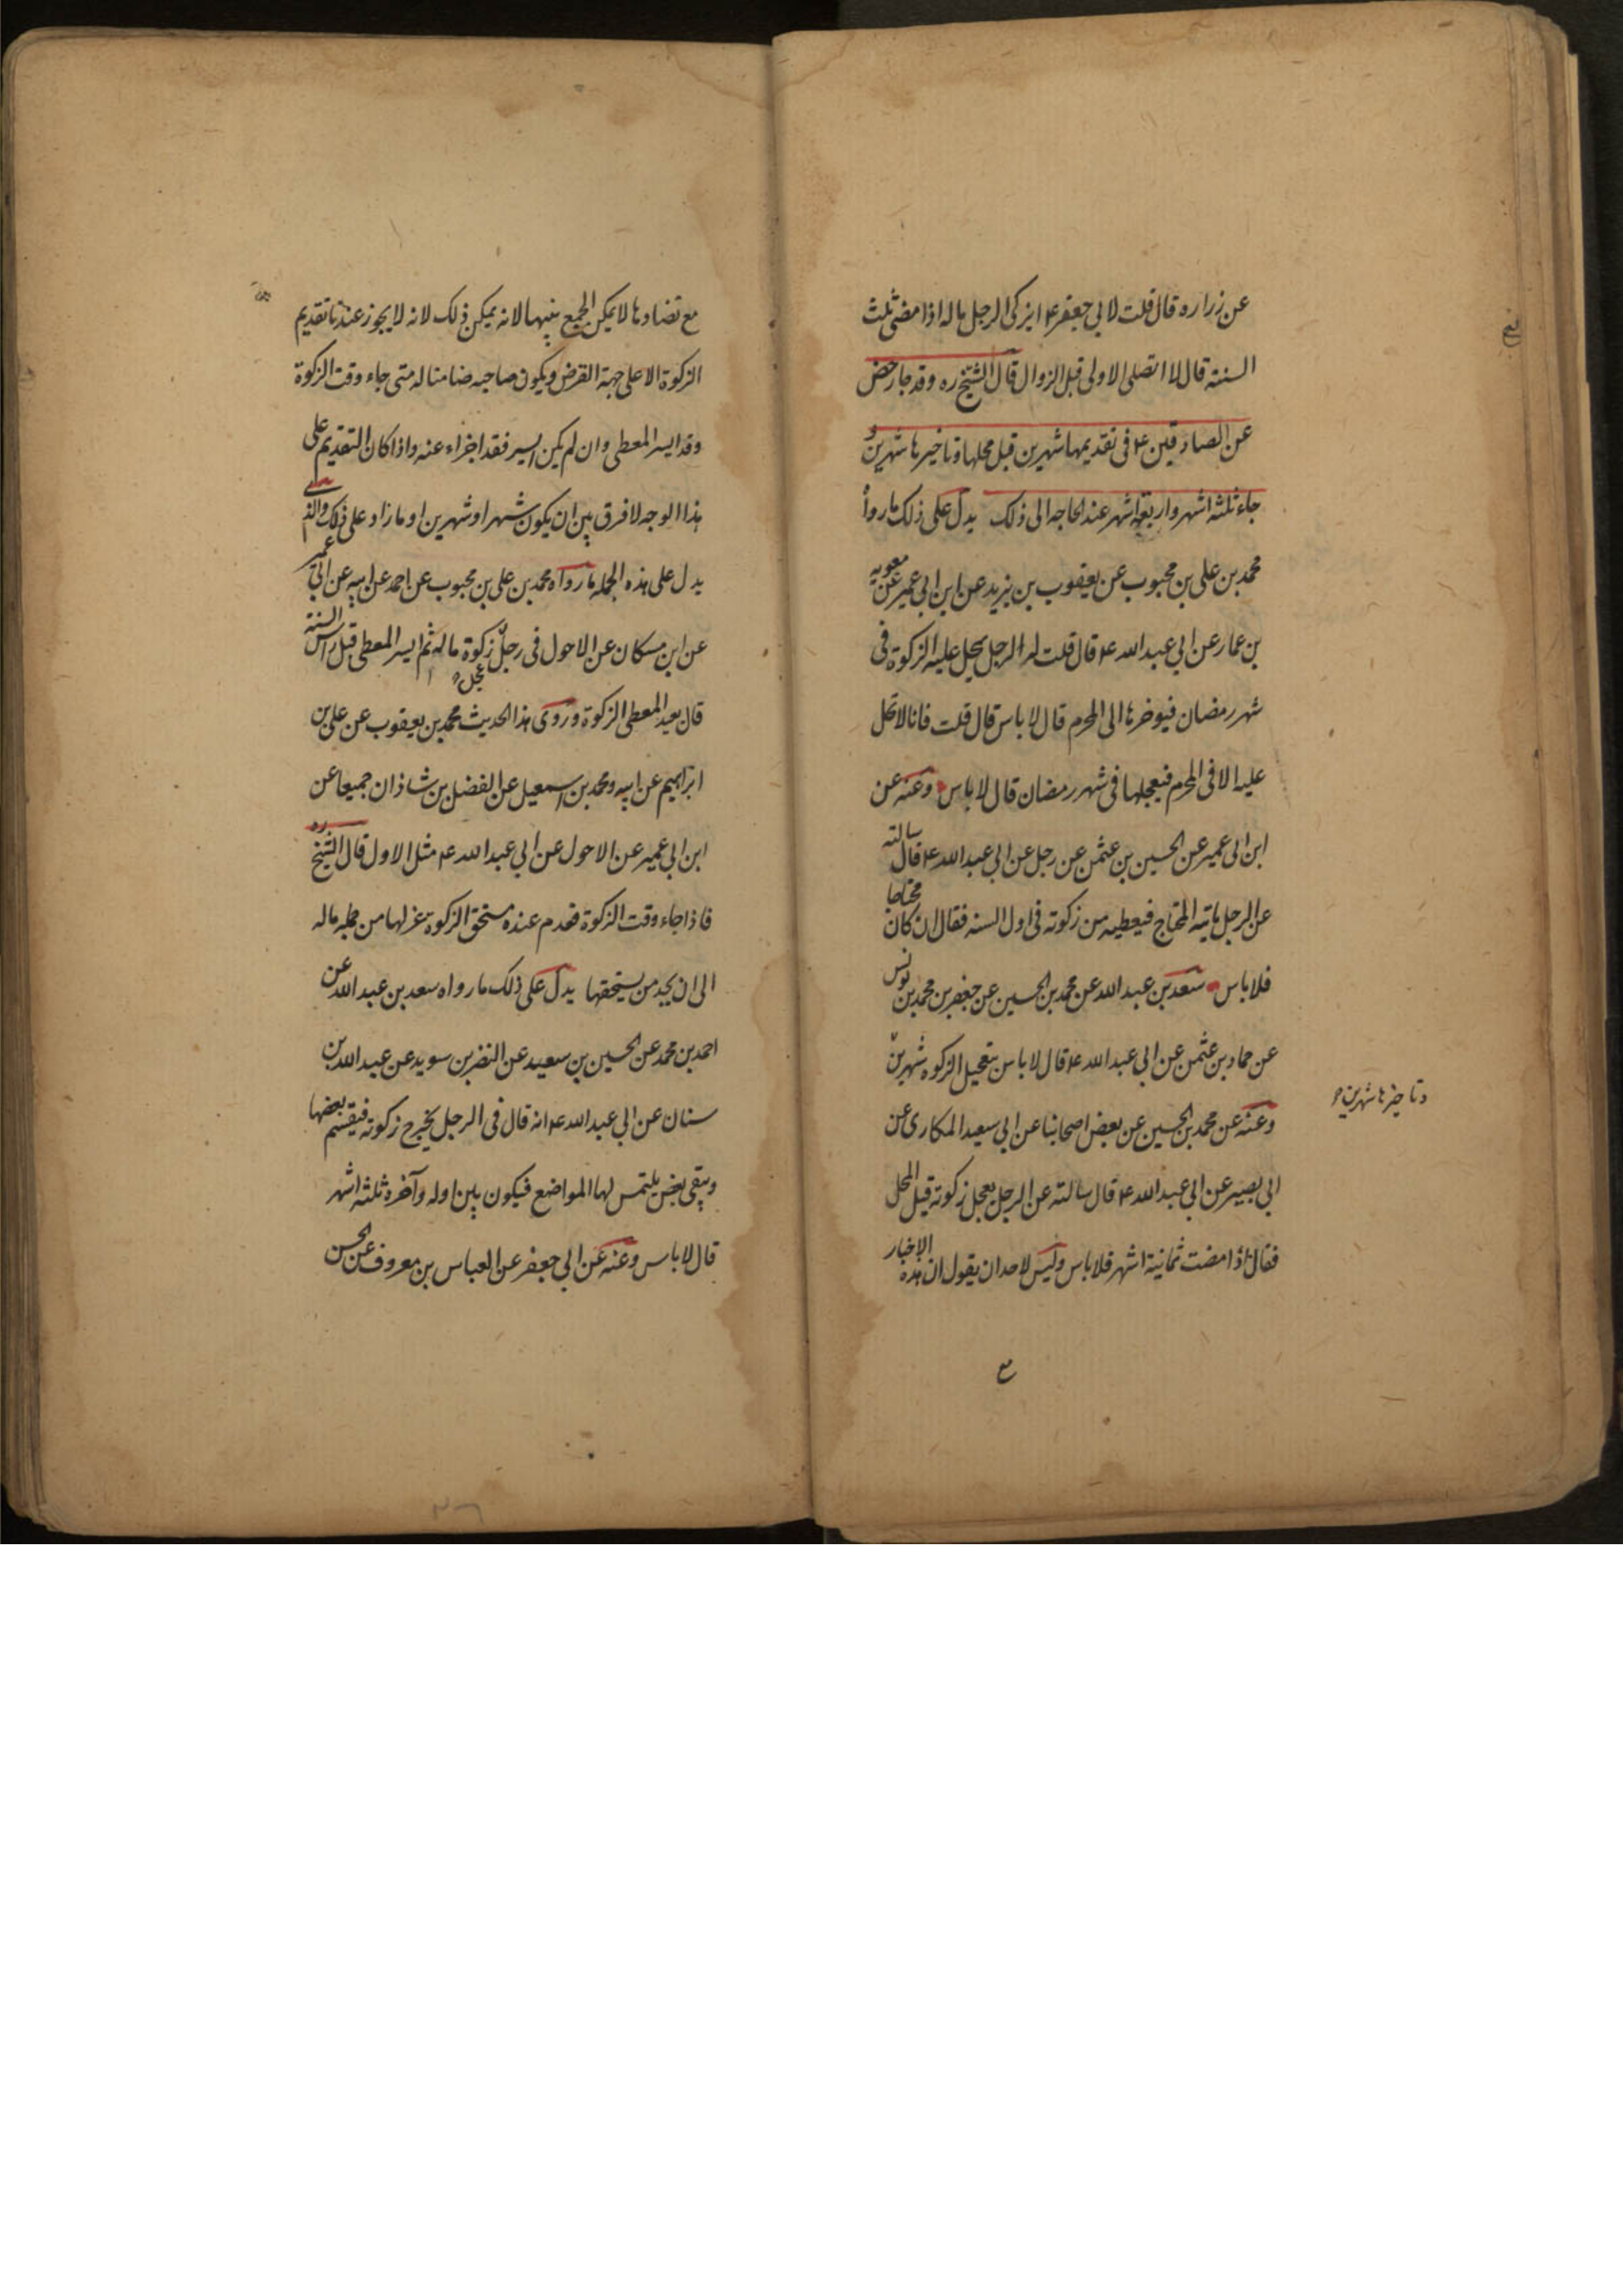 عن زراره قال قلت لابي جعفر ع ايزكى الرجل ماله اذا مضى ثلث
السنة قال لا اتصلى الاولى قبل الزوال قال الشيخ ره وقد جا رخص
عن الصادقين ع فى تقديمها شهرين قبل محلها وتاخيرها شهرين و
جاء ثلثة اشهر واربعة اشهر عند الحاجه الى ذلك يدل على ذلك ما رواه
محمد بن على بن محبوب عن يعقوب بن يزيد عن ابن ابى عمير عن معويه
بن عمار عن ابي عبد الله ع قال قلت له الرجل يحل عليه الزكوة فى
شهر رمضان فيوخرها الى المحرم قال لا باس قال قلت فانها لا تحل
عليه الا فى المحرم فيعجلها فى شهر رمضان قال لا باس وعنه عن
ابن ابى عمير عن الحسين بن عثمن عن رجل عن ابي عبد الله ع قال سالته
عن الرجل ياتيه المحتاج فيعطيه من زكوته فى اول السنه فقال ان كان محتاجا
فلا باس سعد بن عبد الله عن محمد بن الحسين عن جعفر بن محمد بن يونس
عن حماد بن عثمن عن ابي عبد الله ع قال لا باس بتعجيل الزكوه شهرين
وتاخيرها شهرين
وعنه عن محمد بن الحسين عن بعض اصحابنا عن ابي سعيد المكارى عن
ابي بصير عن ابي عبد الله ع قال سالته عن الرجل يعجل زكوته قبل المحل
فقال اذا مضت ثمانية اشهر فلا باس وليس لاحد ان يقول ان هذه الاخبار
مع
مع تضادها لا يمكن الجمع بينها لانه يمكن ذلك لانه لا يجوز عندنا تقديم
الزكوة الا على جهة القرض ويكون صاحبه ضامنا له متى جاء وقت الزكوة
وقد ايسر المعطى وان لم يكن ايسر فقد اجزاء عنه واذا كان التقديم على
هذا الوجه لا فرق بين ان يكون شهرا او شهرين او ما زاد على ذلك والذى
يدل على هذه الجمله ما رواه محمد بن على بن محبوب عن احمد عن ابيه عن ابي عمير
عن ابن مسكان عن الاحول فى رجل عجل زكوة ماله ثم ايسر المعطى قبل راس السنة
قال يعيد المعطى الزكوة وروى هذا الحديث محمد بن يعقوب عن على بن
ابراهيم عن ابيه ومحمد بن اسمعيل عن الفضل بن شاذان جميعا عن
ابن ابي عمير عن الاحول عن ابي عبد الله ع مثل الاول قال الشيخ ره
فاذا جاء وقت الزكوة فعدم عنده مستحق الزكوة عزلها من جمله ماله
الى ان يجد من يستحقها يدل على ذلك ما رواه سعد بن عبد الله عن
احمد بن محمد عن الحسين بن سعيد عن النضر بن سويد عن عبد الله بن
سنان عن ابي عبد الله ع انه قال فى الرجل يخرج زكوته فيقسم بعضها
ويبقى بعض يلتمس لها المواضع فيكون بين اوله وآخره ثلثة اشهر
قال لا باس وعنه عن ابي جعفر عن العباس بن معروف عن الحسن